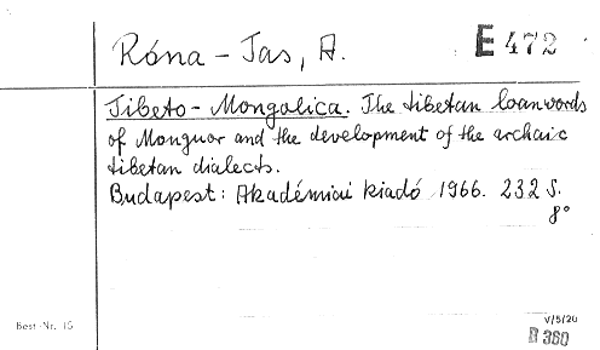 Róna-Tas, A. E 472
Tibeto-Mongolica. The tibetan loanwords
of Monguor and the development of the archaic
tibetan dialects.
Budapest: Akadémiai kiadó 1966. 232 S.
8°
Best.-Nr. 15
V/5/20
B 360